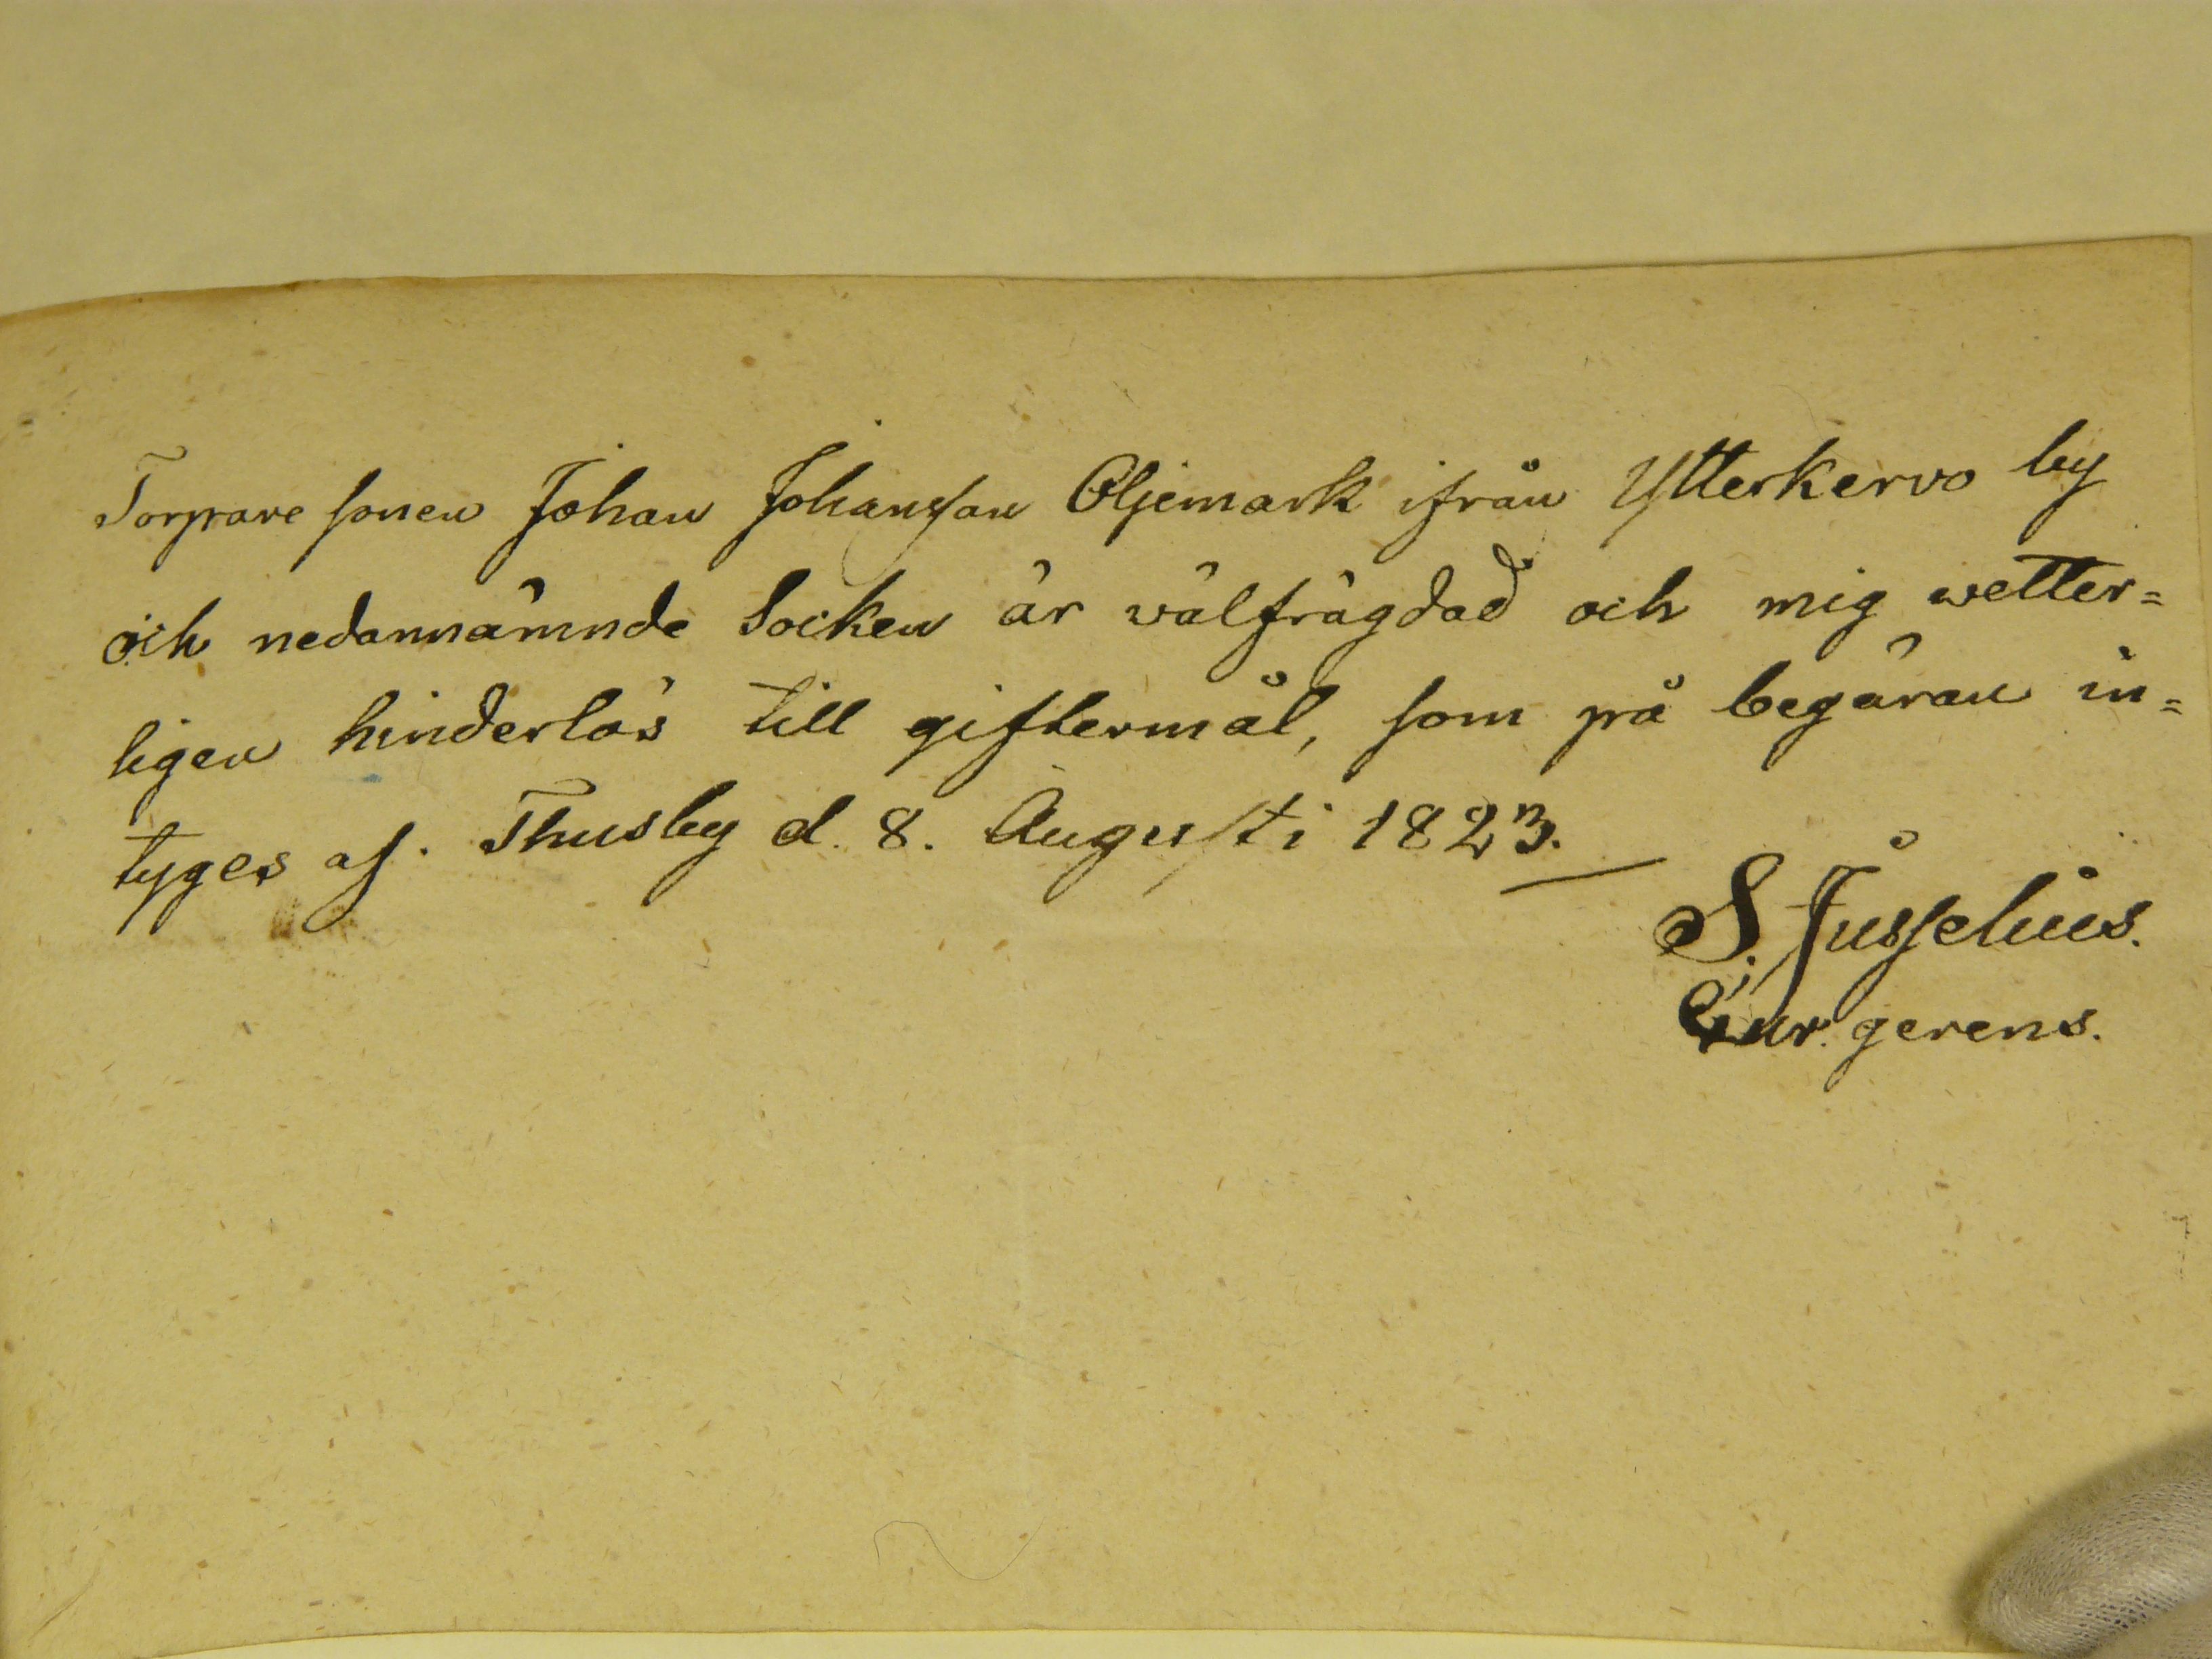 Torpare sonen Johan Johansson Oljemark ifrån Ytterkervo by
och nedannämnde Socken är välfrägdad och mig wetter=
ligen hinderlös till giftermål, som på begäran in=
tyges af. Thusby d. 8. Augusti 1823.
S. Jusselius.
Cur. gerens.